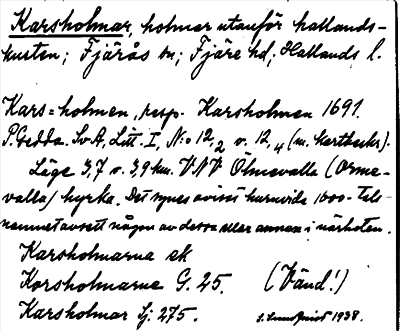 Karsholmar, holmar utanför hallands-
kusten; Fjärås sn; Fjäre hd; Hallands l.
Kars=holmen, resp. Karsholmen 1691.
P. Gedda. SvA, Litt. I, No 12,2 o. 12,4 (m. kartbeskr).
Läge 3,7 o. 3,9 km. VNV Ölmevalla (Orme-
valla) kyrka. Det synes ovisst huruvida 1600-tals
namnet avsett någon av dessa eller annan i närheten.
Karsholmarna ek
Korsholmarne G. 25. (Vänd!)
Karsholmar Sj. 275. 1938.